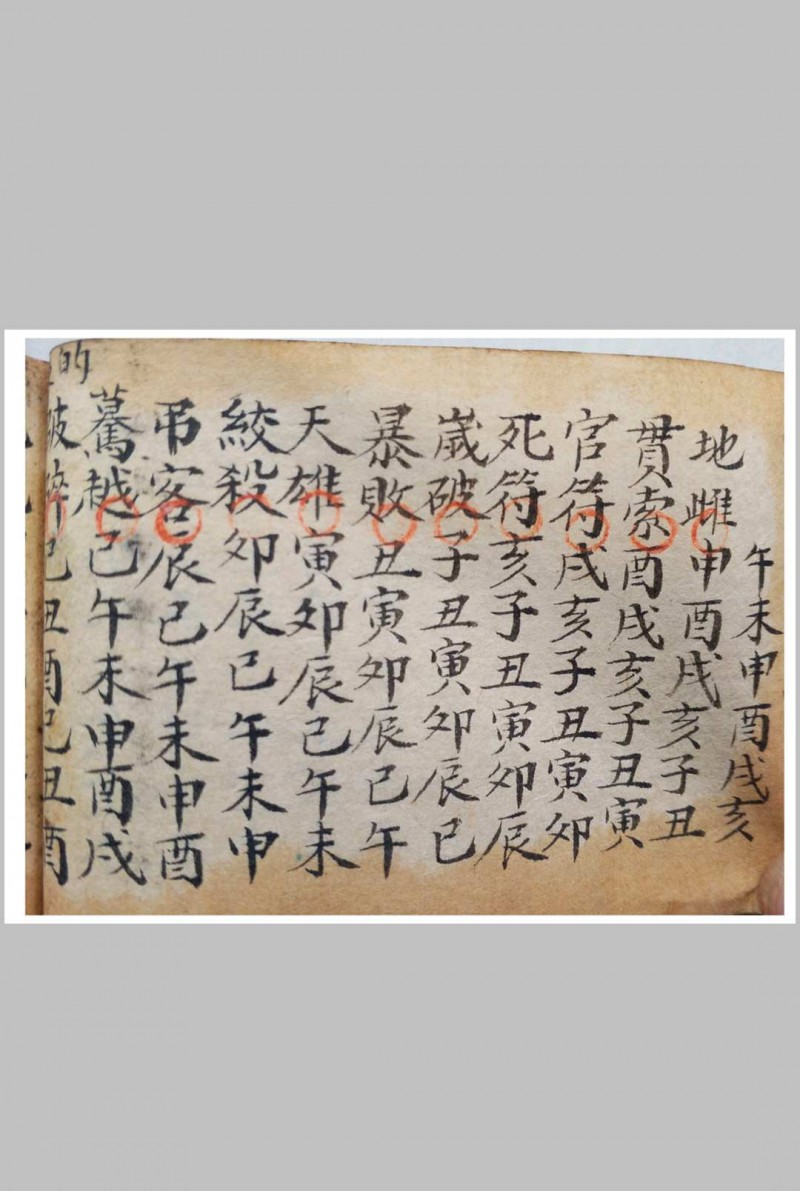 午未申酉戌亥
地雌申酉戌亥子丑
貫索酉戌亥子丑寅
官符戌亥子丑寅卯
死符亥子丑寅卯辰
歲破子丑寅卯辰巳
暴敗丑寅卯辰巳午
天雄寅卯辰巳午未
絞殺卯辰巳午未申
弔客辰巳午未申酉
驀越巳午未申酉戌
的
破碎巳丑酉巳丑酉